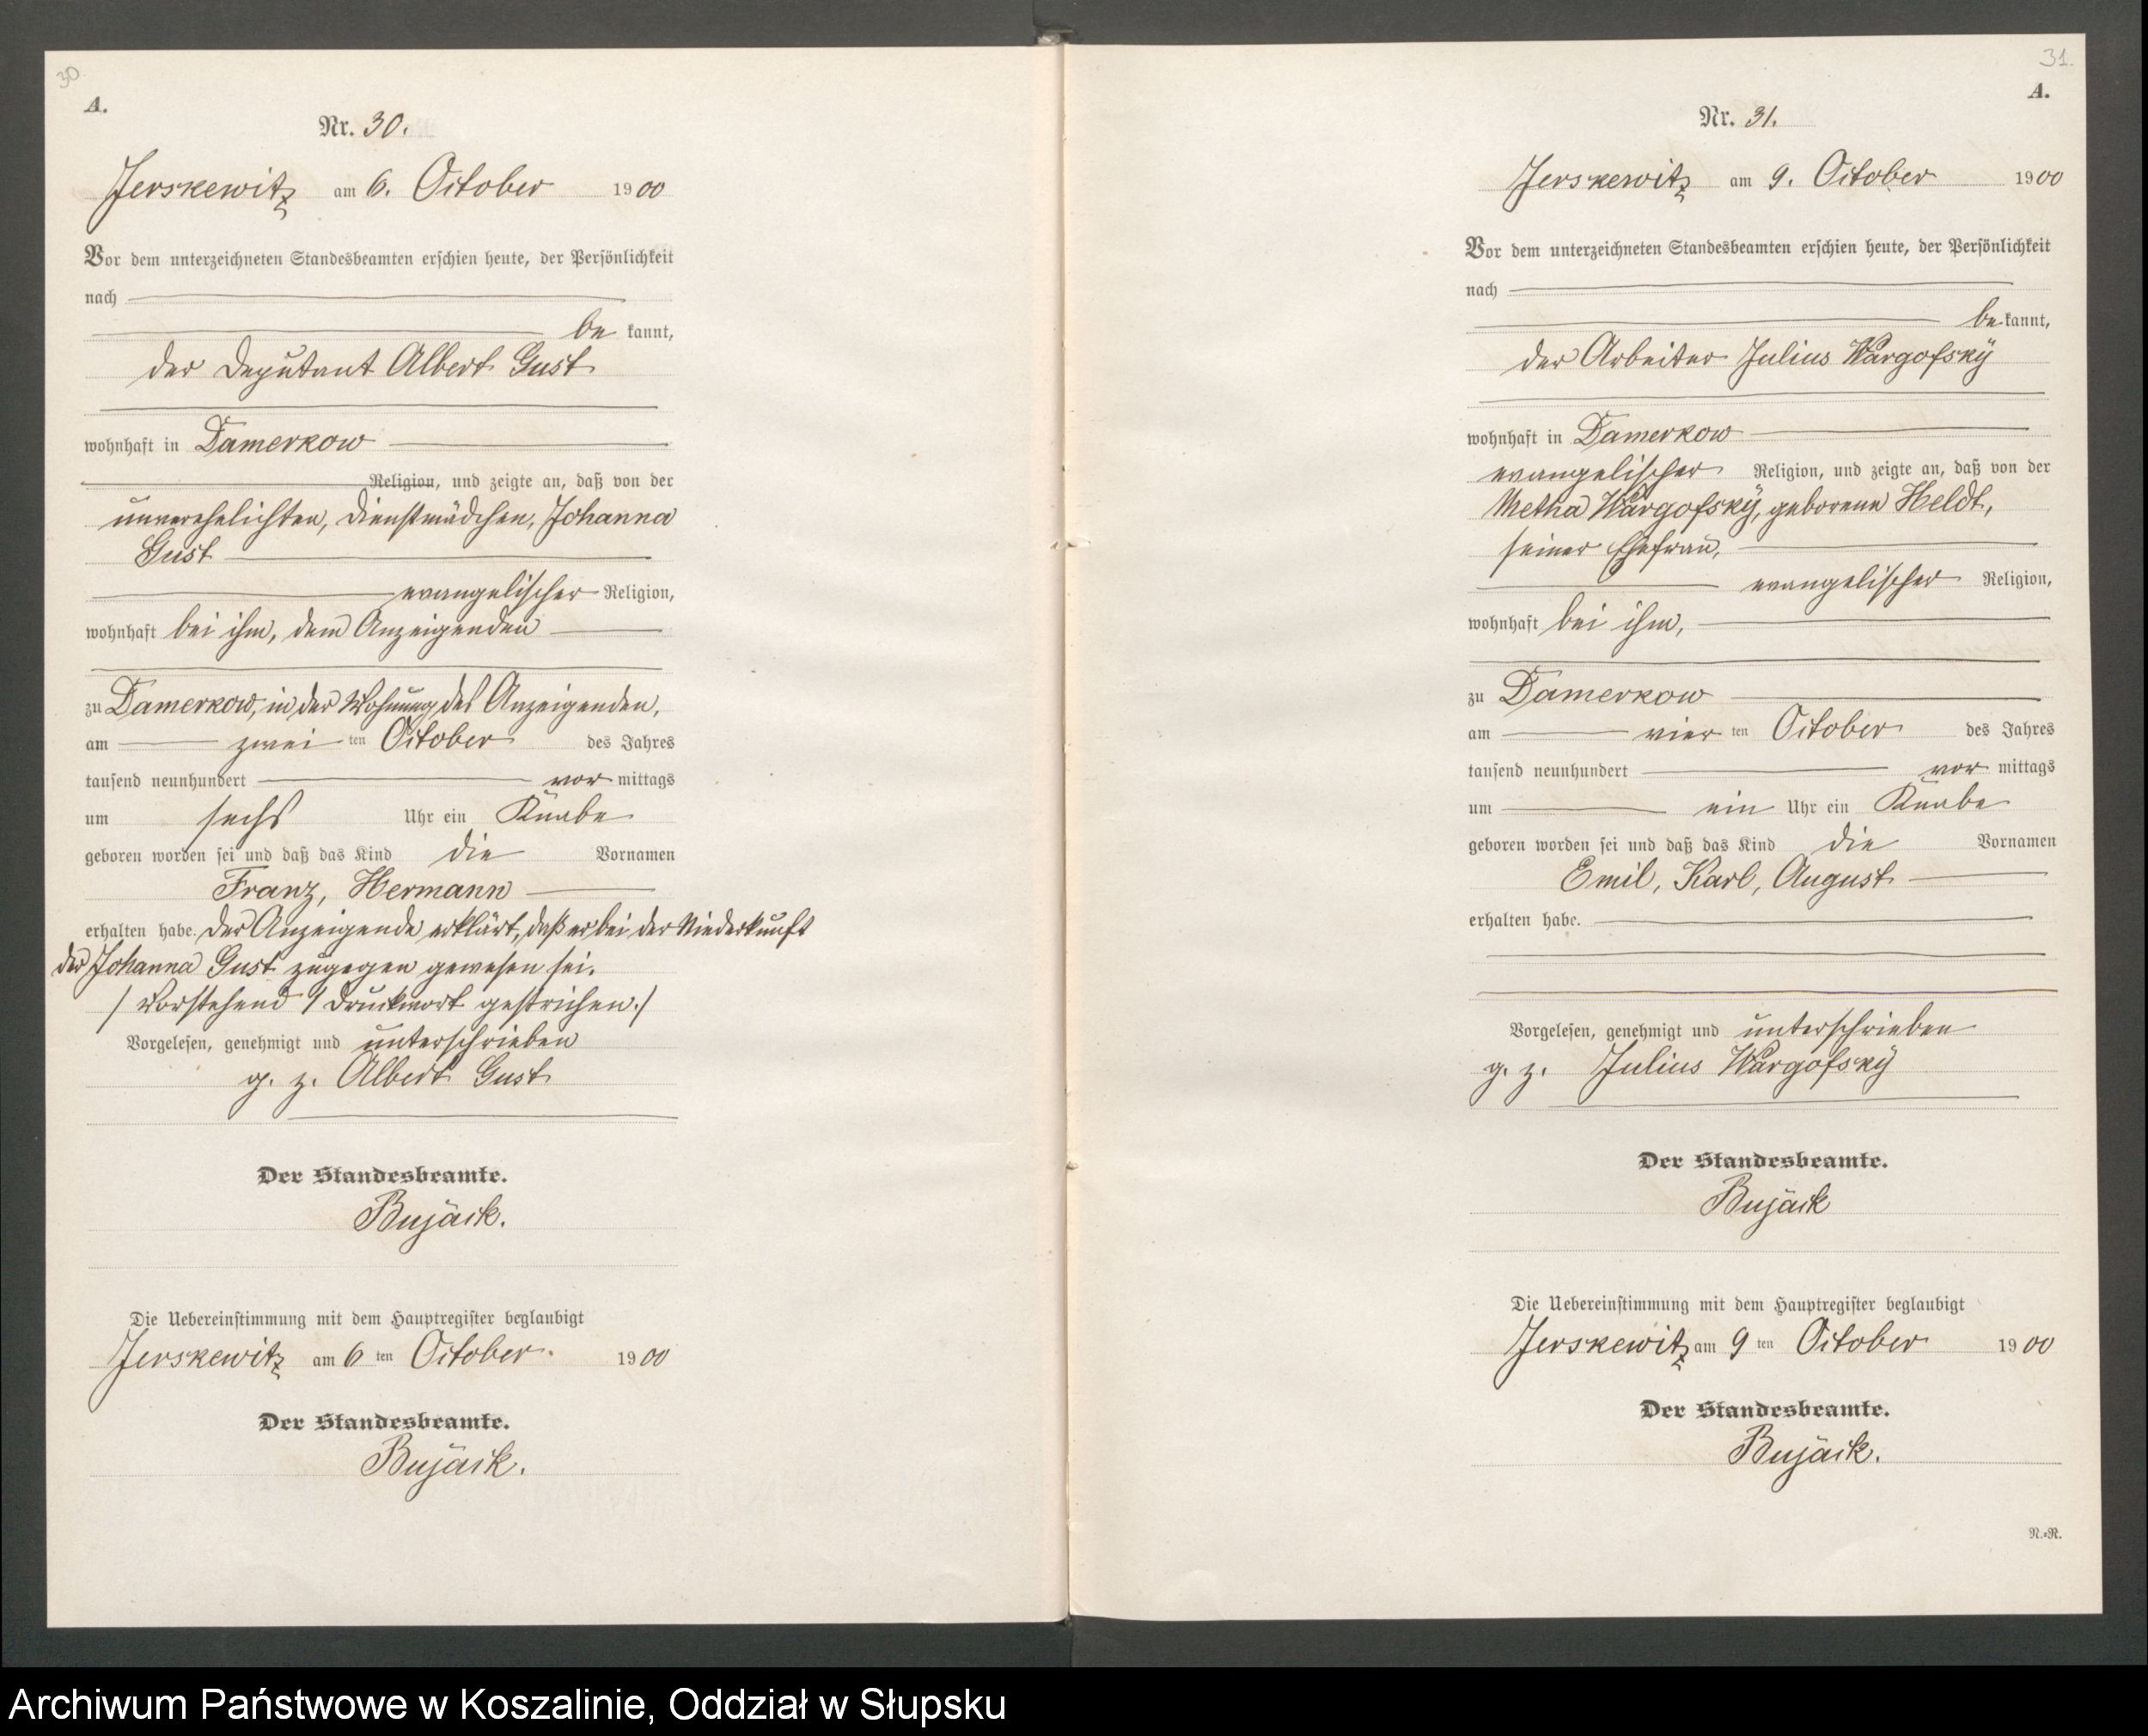 30
A.
Nr. 30.
Jerskewitz am 6. October 1900
Vor dem unterzeichneten Standesbeamten erschien heute, der Persönlichkeit
nach
be kannt,
der Deputant Albert Gust
wohnhaft in Damerkow
Religion, und zeigte an, daß von der
unverehelichten, Dienstmädchen, Johanna
Gust
evangelischer Religion,
wohnhaft bei ihm, dem Anzeigenden
zu Damerkow, in der Wohnung des Anzeigenden,
am zwei ten October des Jahres
tausend neunhundert vor mittags
um sechs Uhr ein Knabe
geboren worden sei und daß das Kind die Vornamen
Franz, Hermann
erhalten habe. Der Anzeigende erklärt, daß er bei der Niederkunft
der Johanna Gust zugegen gewesen sei.
/ Vorstehend 1 Druckwort gestrichen./
Vorgelesen, genehmigt und unterschrieben
g. z. Albert Gust
Der Standesbeamte.
Bujack.
Die Uebereinstimmung mit dem Hauptregister beglaubigt
Jerskewitz am 6 ten October. 1900
Der Standesbeamte.
Bujack.
31.
A.
Nr. 31.
Jerskewitz am 9. October 1900
Vor dem unterzeichneten Standesbeamten erschien heute, der Persönlichkeit
nach
be kannt,
der Arbeiter Julius Wargofsky
wohnhaft in Damerkow
evangelischer Religion, und zeigte an, daß von der
Metha Wargofsky, geborene Heldt,
seiner Ehefrau,
evangelischer Religion,
wohnhaft bei ihm,
zu Damerkow
am vier ten October des Jahres
tausend neunhundert vor mittags
um ein Uhr ein Knabe
geboren worden sei und daß das Kind die Vornamen
Emil, Karl, August
erhalten habe.
Vorgelesen, genehmigt und unterschrieben
g. z. Julius Wargofsky
Der Standesbeamte.
Bujack
Die Uebereinstimmung mit dem Hauptregister beglaubigt
Jerskewitz am 9 ten October 1900
Der Standesbeamte.
Bujack.
N.=R.
Archiwum Państwowe w Koszalinie, Oddział w Słupsku